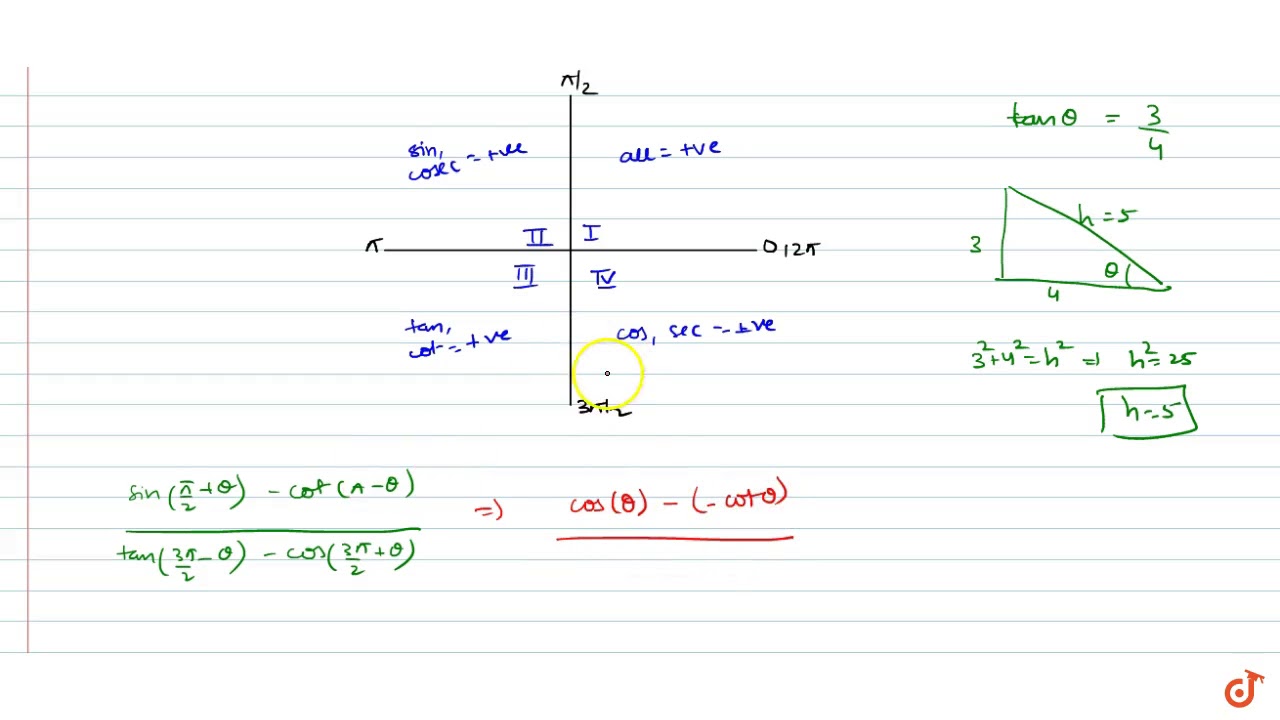 π/2
sin,
cosec = +ve
all = +ve
π
II
I
0,2π
III
IV
tan,
cot = +ve
cos, sec = +ve
3π/2
tanθ = 3/4
h = 5
3
θ
4
3²+4²=h² => h²=25
h=5
sin(π/2+θ) - cot(π-θ)
tan(3π/2-θ) - cos(3π/2+θ)
=> cos(θ) - (-cotθ)